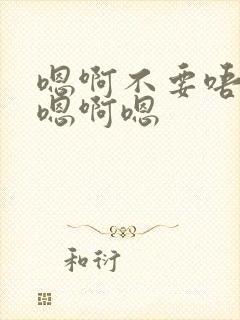 嗯啊不要唔
嗯啊嗯
和衍